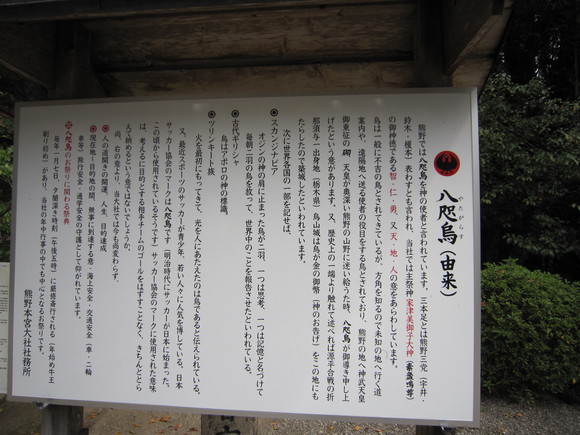 八咫烏(由来)
やたがらす
熊野では八咫烏を神の使者と言われています。三本足とは熊野三党(宇井・
鈴木・榎本)表わすとも言われ、当社では主祭神家津美御子大神(素盞鳴尊)
の御神徳である智・仁・勇、又天・地・人の意をあらわしています。
烏は一般に不吉の鳥とされてきているが、方角を知るので未知の地へ行く道
案内や、遠隔地へ送る使者の役目をする鳥とされており、熊野の地へ神武天皇
御東征の砌、天皇が奥深い熊野の山野に迷い給うた時、八咫烏が御導き申し上
げたという意があります。又、歴史上の一端より触れて述べれば源平合戦の折
那須与一出身地(栃木県)烏山城は烏が金の御幣(神のお告げ)をこの地にも
たらしたので築城したといわれています。
次に世界各国の一部を記せば、
●スカンジナビア
オジンの神の肩に止まった烏が二羽、一つは思考、一つは記憶と名づけて
毎朝二羽の烏を放って、世界中のことを報告させたといわれている。
●古代ギリシャ
アポロの神の標識。
●ツリンキート族
火を最初にもってきて、光を人にあたえたのは烏であると伝えられている。
又、最近スポーツのサッカーが青少年、若い人々に人気を博している。日本
サッカー協会のマークは八咫烏です(明治時代にサッカーが日本に始まった。
この頃から使用されているそうです)サッカー協会のマークに使用された意味
は、考えるに目的とする相手チームのゴールをはずすことなく、きちんととら
えて納めるという意ではないでしょうか。
尚、右の意より、当大社では今も尚変わらず、
●人の道開きの開運、人生、目的達成
●現在地~目的地の間、無事に到達する意・海上安全・交通安全(車・二輪
車等)旅行安全・通学安全の守護として仰がれています。
※八咫烏のお祭りに関わる祭典
毎年一月七日、夕闇深き時刻(午後五時)に厳修斎行される(年始め牛王
刷り始め)があり、当社の年中行事の中でも中心となるお祭りです。
熊野本宮大社社務所